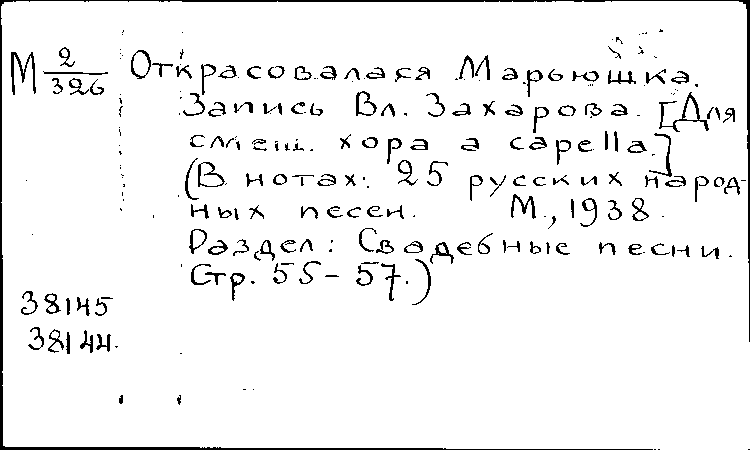 М 2/326 Открасовалася Марьюшка.
Запись Вл. Захарова. [Для
смеш. хора a capella.]
(В нотах: 25 русских народ-
ных песен. М., 1938.
Раздел: Свадебные песни.
Стр. 55-57.)
38145
38144.